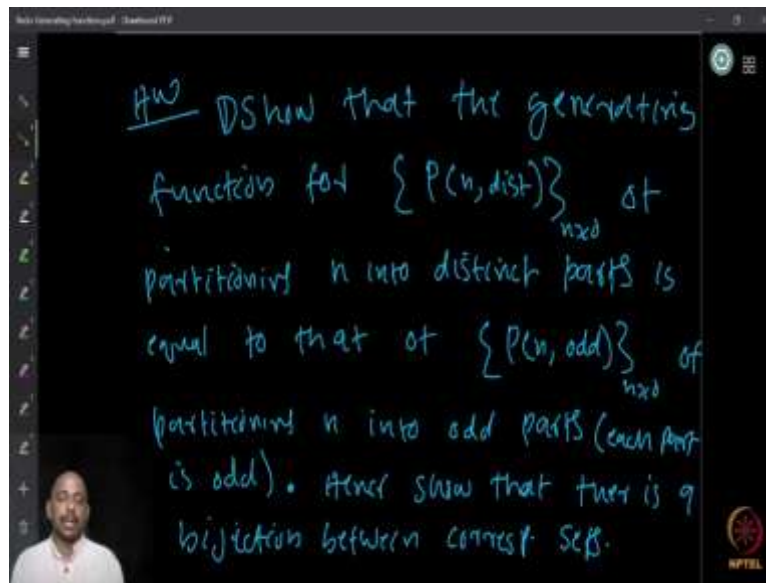 HW 1) Show that the generating
function for { P(n, dist) }n≥0 of
partitioning n into distinct parts is
equal to that of { P(n, odd) }n≥0 of
partitioning n into odd parts (each part
is odd). Hence show that ther is a
bijection between corresp. sets.
NPTEL